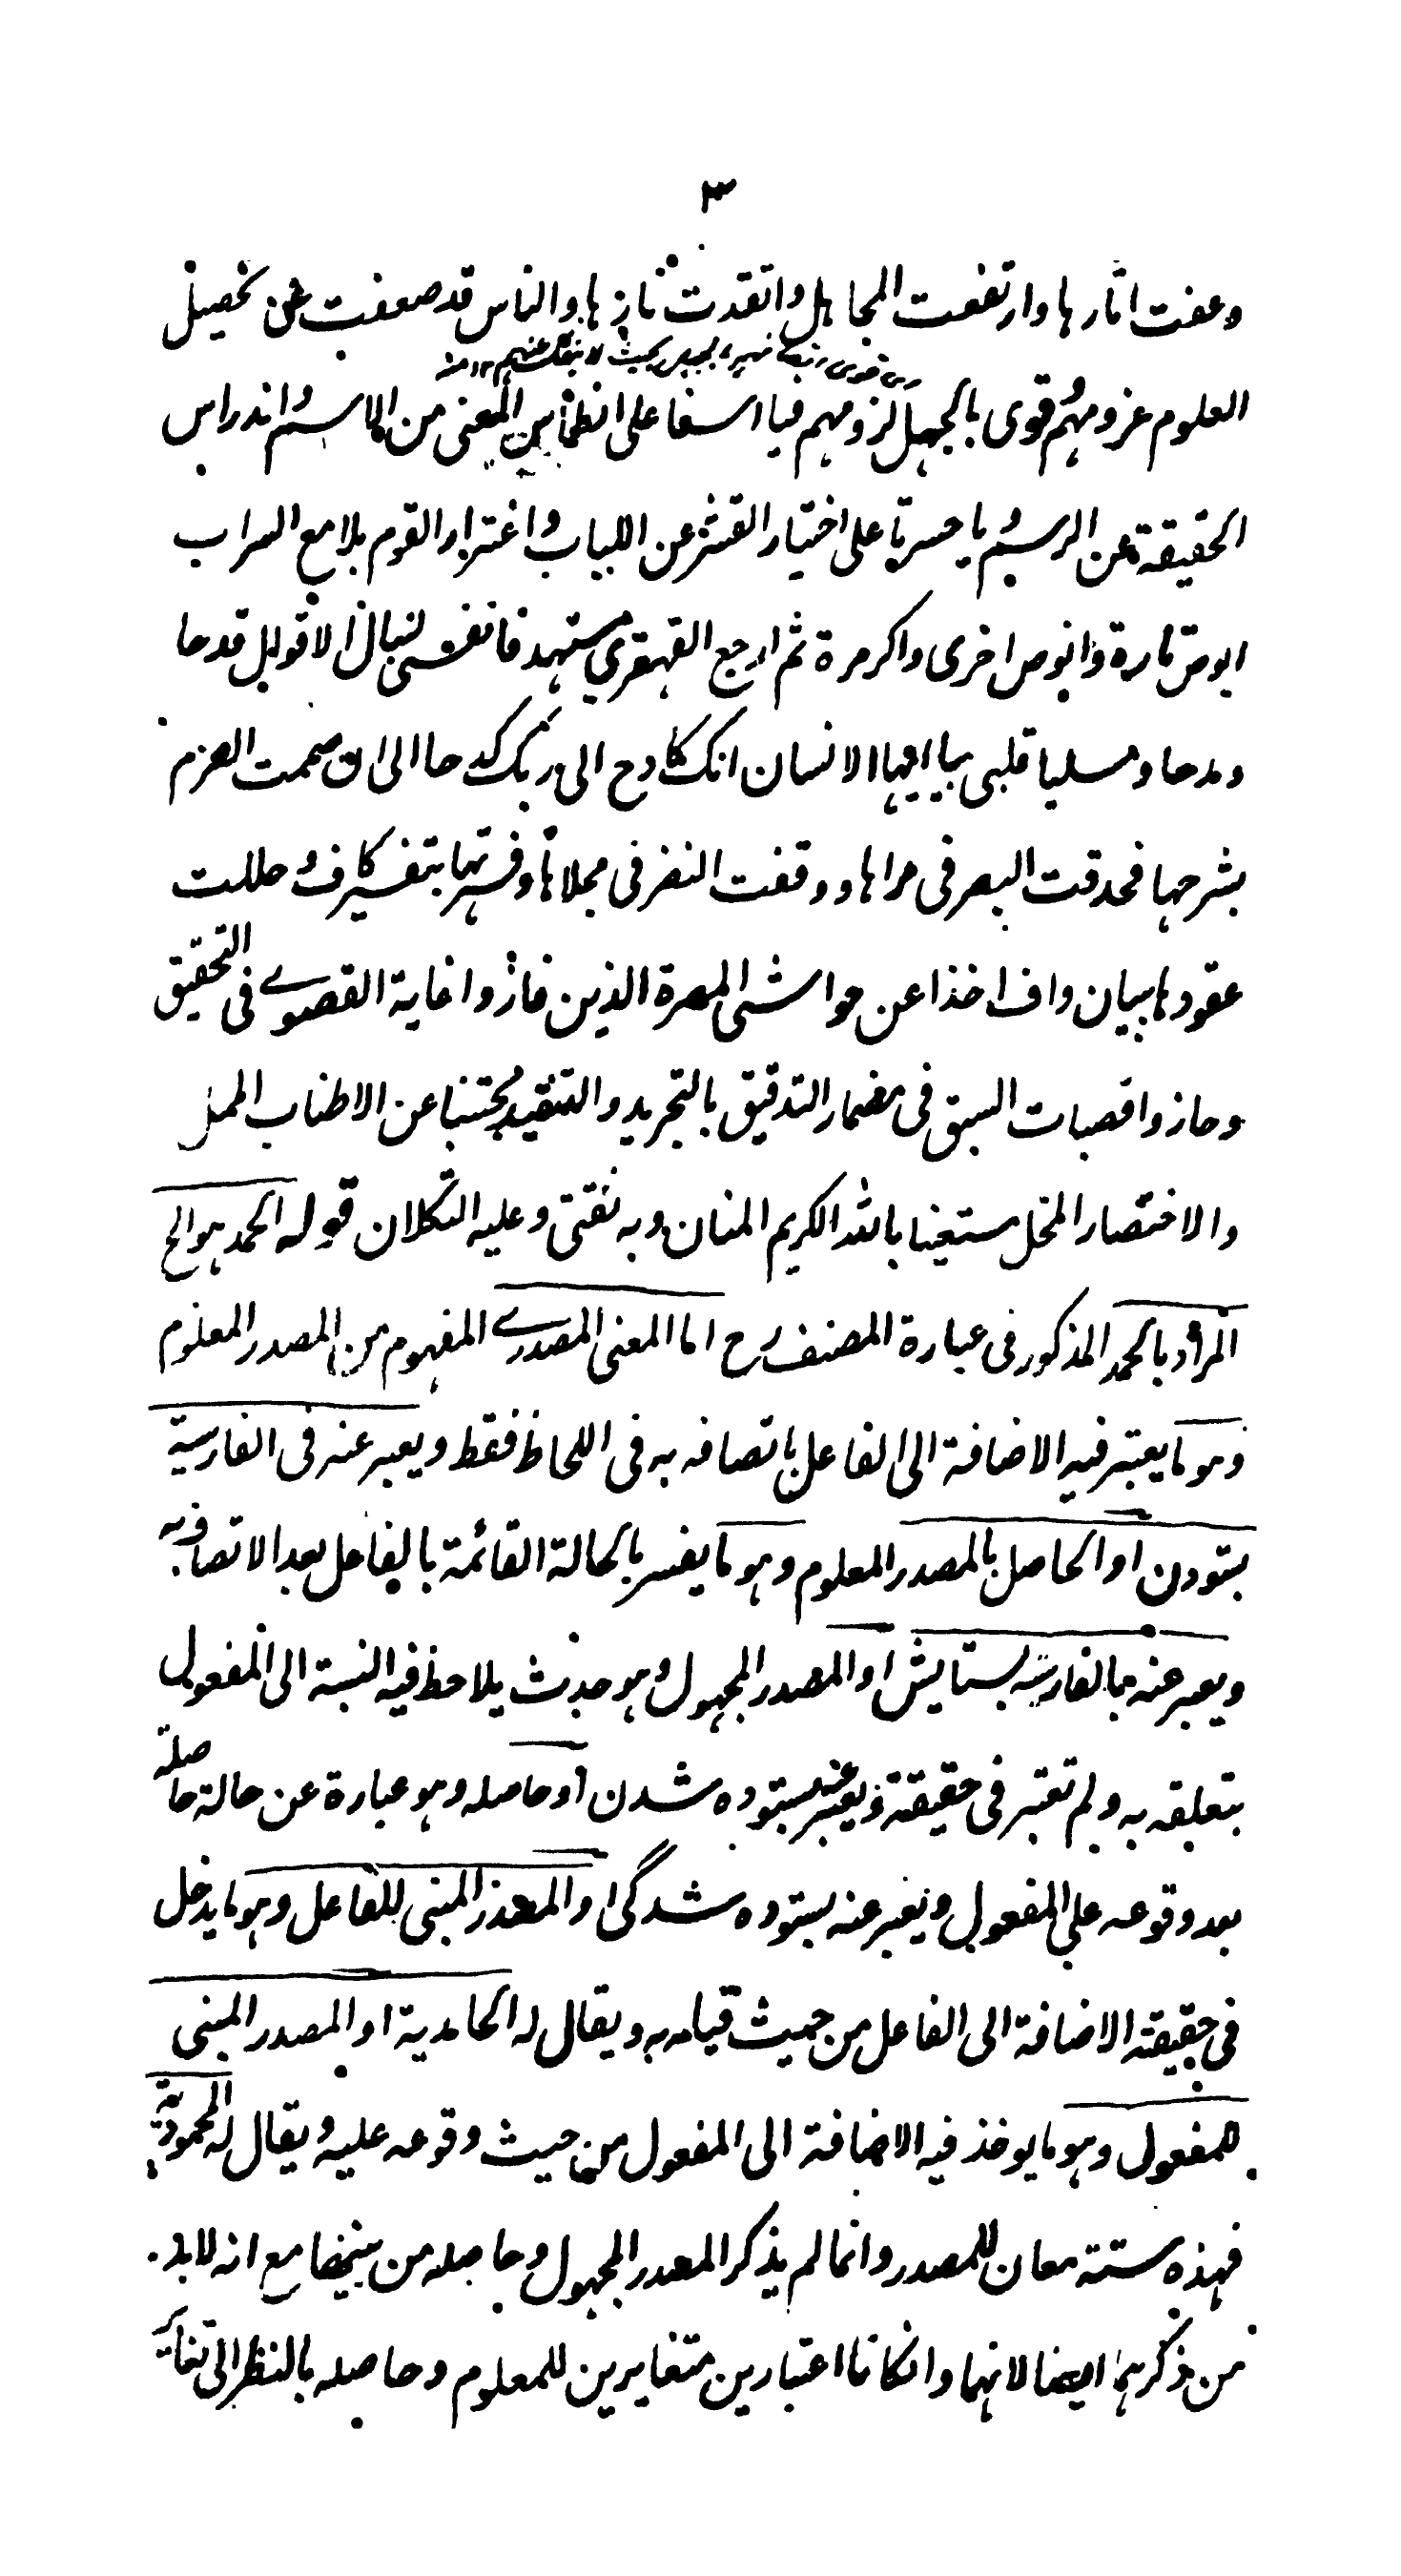 ٣
وعفت اثارها وارتفعت المجاهل واتقدت نارها والناس قد ضعفت عن تحصيل
بحيث لا ينفك عنهم ١٢ منه
العلوم عزومهم وقوى بالجهل لزومهم فيا اسفا على انطماس المعنى من الاسم واندراس
الحقيقة عن الرسم ويا حسرتا على اختيار القشر عن اللباب واغترار القوم بلامع السراب
ابوص تارة وانوص اخرى واكر مرة ثم ارجع القهقرى فانفسى لنبال الاقوال قدحا
ومدحا ومسليا قلبى بيا ايها الانسان انك كادح الى ربك كدحا الى ان صممت العزم
بشرحها فحدقت البصر فى مراها ووقفت النظر فى مجلاها وفسرتها بتفسير كاف وحللت
عقودها ببيان واف اخذا عن حواشى المهرة الذين فازوا غاية القصوے فى التحقيق
وحازوا قصبات السبق فى مضمار التدقيق بالتجريد والتنقيد مجتنبا عن الاطناب الممل
والاختصار المخل مستعينا بالله الكريم المنان وبه ثقتى وعليه التكلان قوله الحمد هو الخ
المراد بالحمد المذكور فى عبارة المصنف رح اما المعنى المصدرے المفهوم من المصدر المعلوم
وهو ما يعتبر فيه الاضافة الى الفاعل باتصافه به فى اللحاظ فقط ويعبر عنه فى الفارسية
بستودن او الحاصل بالمصدر المعلوم وهو ما يفسر بالحالة القائمة بالفاعل بعد الاتصاف به
ويعبر عنه بالفارسية بستايش او المصدر المجهول وهو حدث يلاحظ فيه النسبة الى المفعول
بتعلقه به ولم تعتبر فى حقيقة ويعبر عنه بستوده شدن او حاصله وهو عبارة عن حالة حاصلة
بعد وقوعه على المفعول ويعبر عنه بستوده شدگى او المصدر المبنى للفاعل وهو ما يدخل
فى حقيقته الاضافة الى الفاعل من حيث قيامه به ويقال له الحامدية او المصدر المبنى
للمفعول وهو ما يوخذ فيه الاضافة الى المفعول من حيث وقوعه عليه ويقال له المحمودية
فهذه ستة معان للمصدر وانما لم يذكر المصدر المجهول وحاصله من مع انه لابد
من ذكرهما ايضا لانهما وان كانا اعتبارين متغايرين للمعلوم وحاصله بالنظر الى تغاير